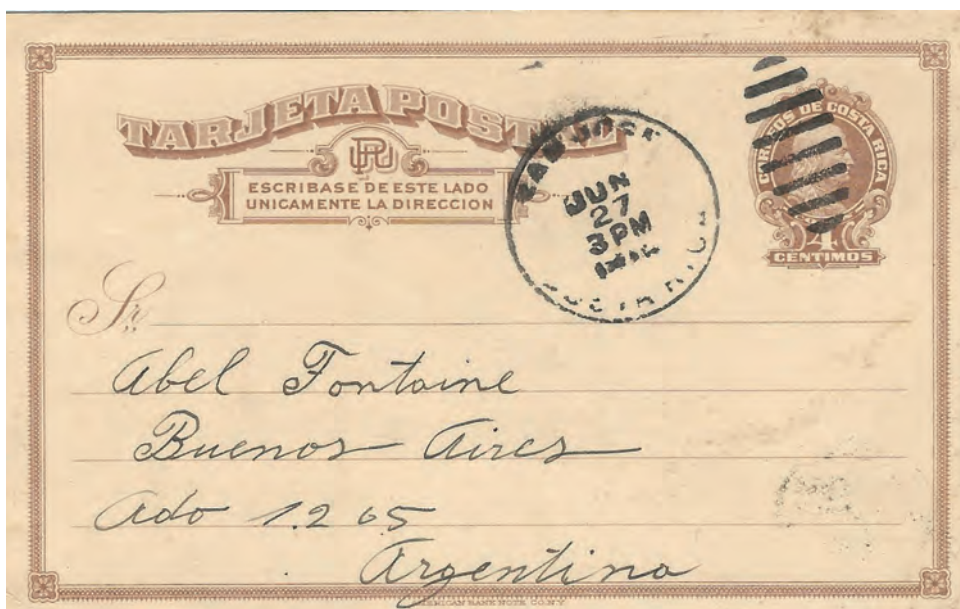 TARJETA POSTAL
UPR
ESCRIBASE DE ESTE LADO
UNICAMENTE LA DIRECCION
SAN JOSE
JUN
27
3 PM
COSTA RICA
CORREOS DE COSTA RICA
4
CENTIMOS
Sr.
Abel Fontaine
Buenos Aires
Ado 1265
Argentina
AMERICAN BANK NOTE CO. N.Y.